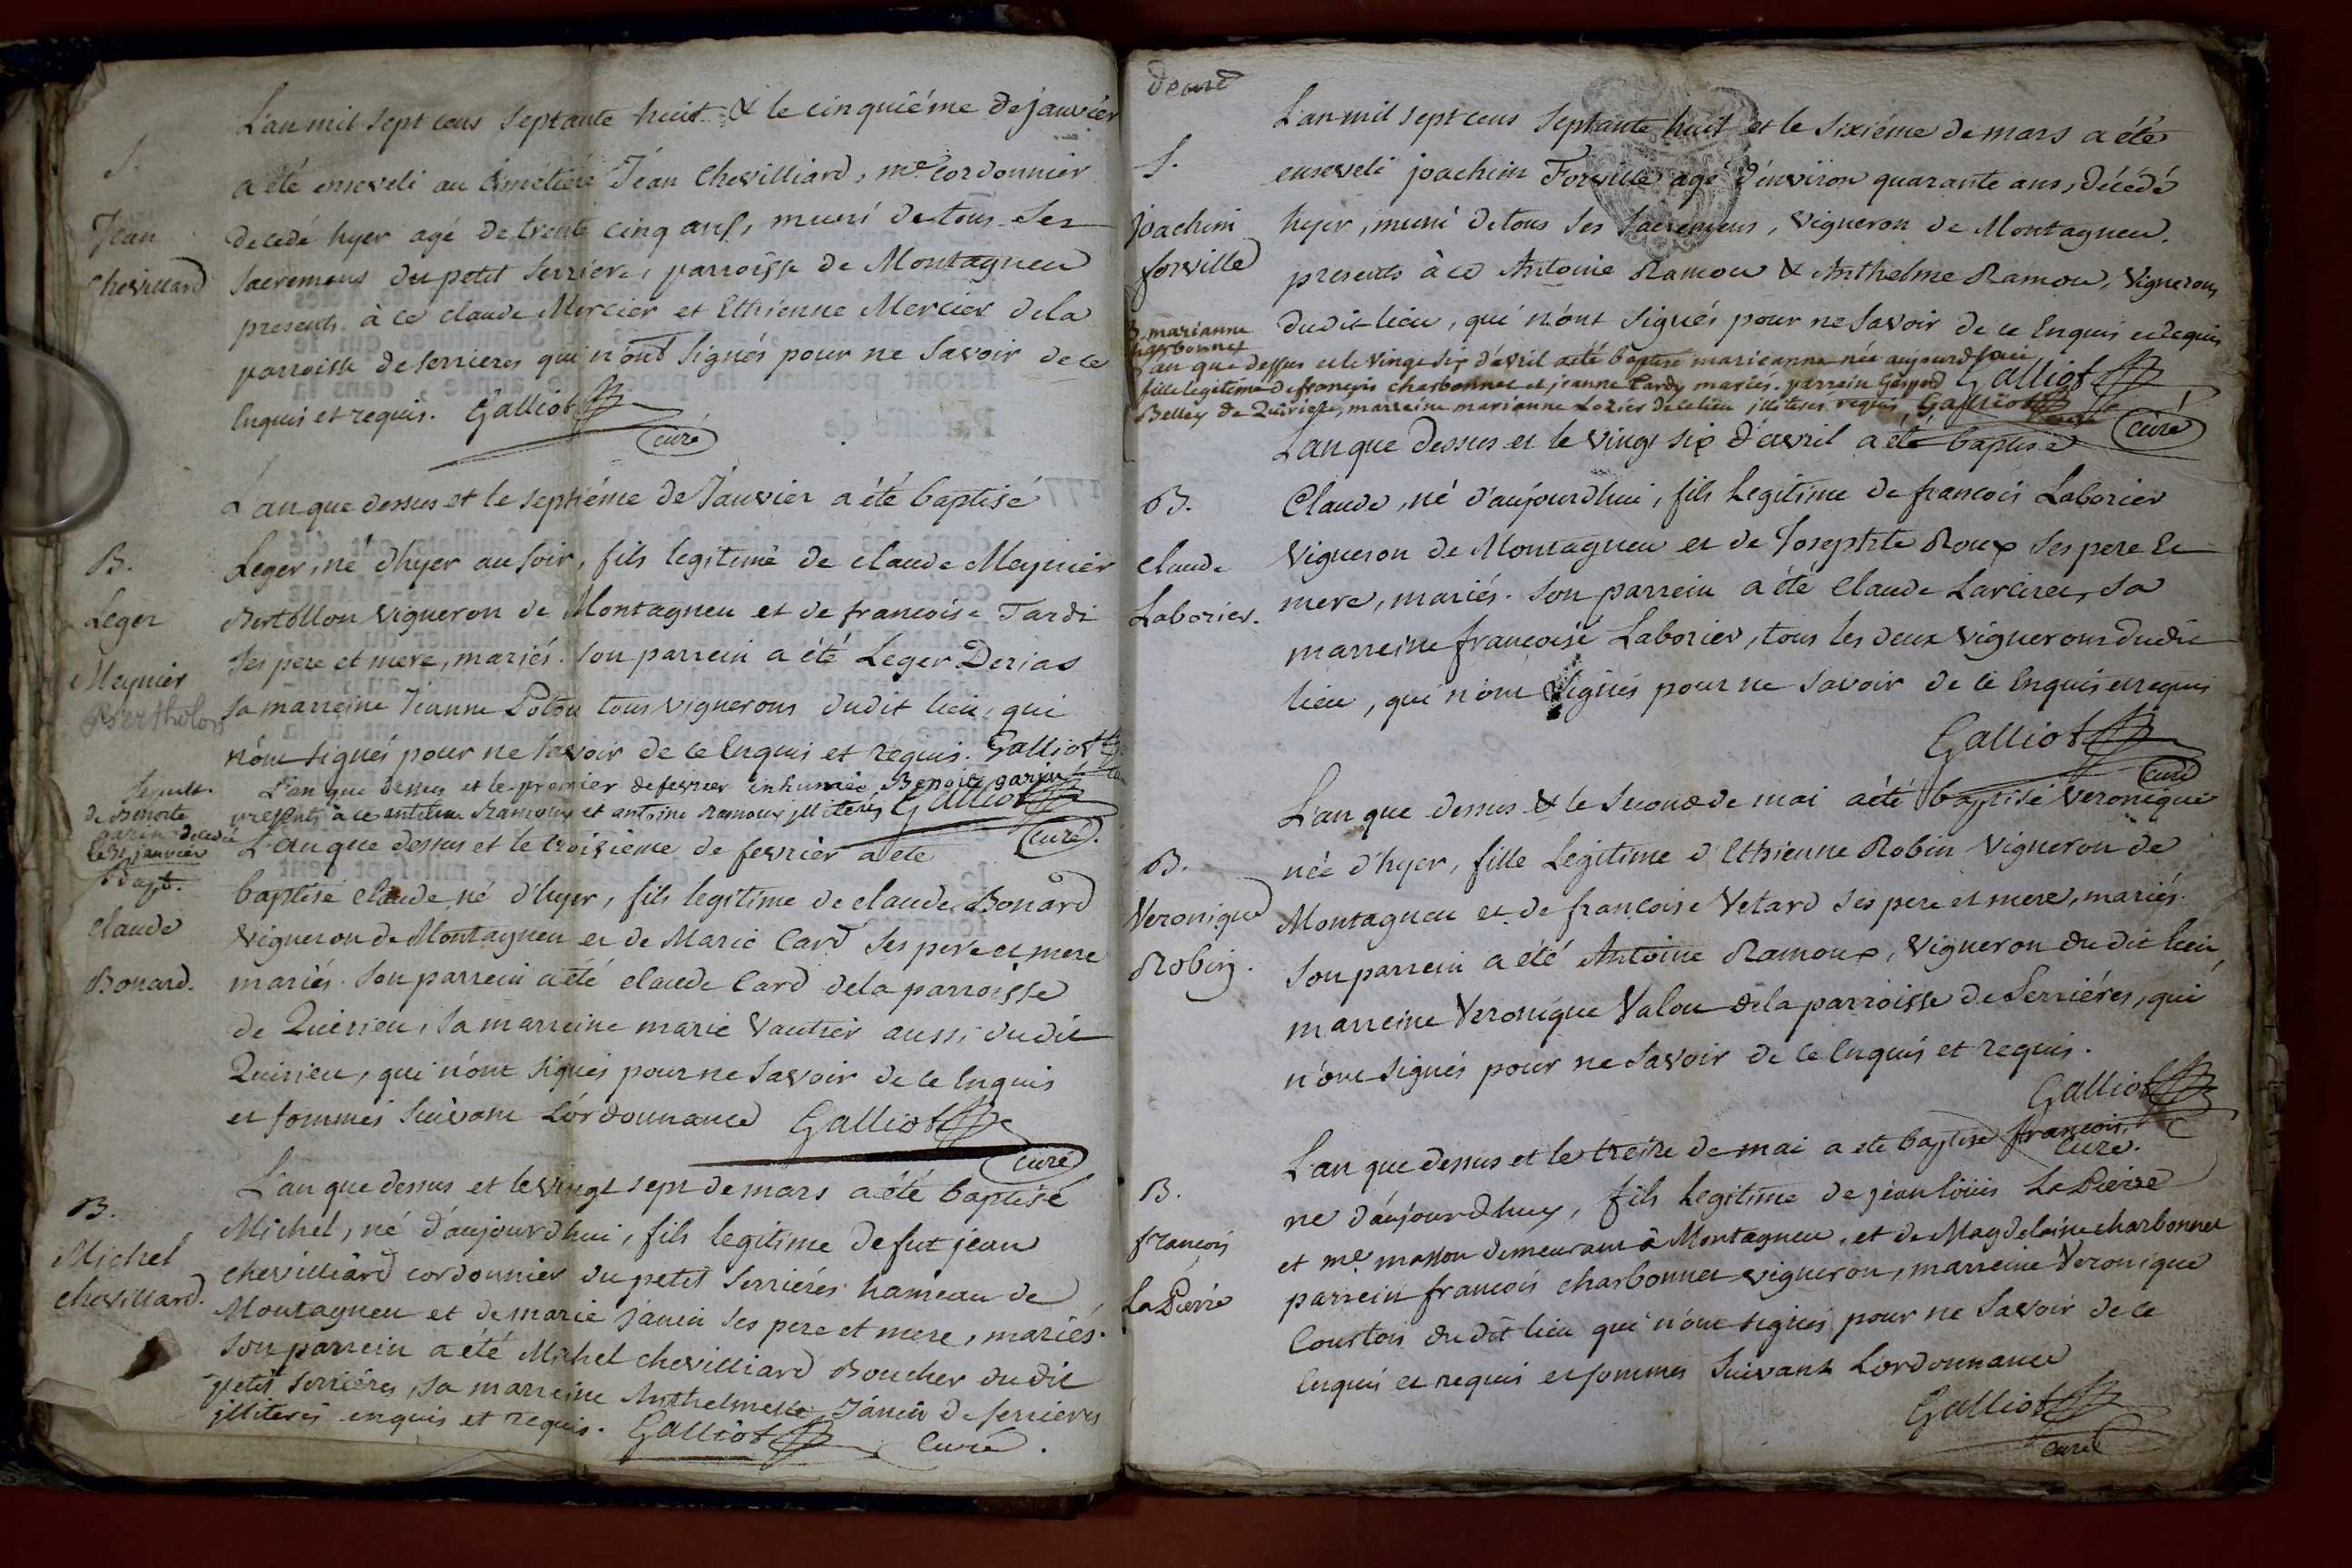 L'an mil sept cens septante huit & le cinquiéme de janvier
S.
a été enseveli au cimetiére Jéan Chevilliard, me cordonnier
Jean
Chevillard
decedé hyer agé de trente cinq ans, muni de tous ses
sacremens du petit Serriere, parroisse de Montagneu
presents à ce claude Mercier et Ethienne Mercier de la
parroisse de serrieres qui n'ont signés pour ne savoir de ce
Enquis et requis. Galliot
curé
L'an que dessus et le septiéme de Janvier a été baptisé
B.
Leger
Meynier
Bertholon
Leger, né d'hyer au soir, fils legitime de claude Meynier
Bertollon vigneron de Montagneu et de francoise Tardi
ses pere et mere, mariés. son parrein a été Leger Derias
sa marreine Jeanne Polon tous vignerons dudit lieu, qui
n'ont signés pour ne savoir de ce Enquis et requis. Galliot
sepult.
de Benoite
garin decedé
le 31 janvier
L'an que dessus et le premier de fevrier inhumée Benoite garin
presents à ce antelme Ramoux et antoine Ramoux illiterés Galliot
curé.
L'an que dessus et le troisieme de fevrier a eté
bapt.
claude
Bonard.
baptisé claude né d'hyer, fils legitime de claude Bonard
vigneron de Montagneu et de Marie Card ses pere et mere
mariés. son parrein a été claude Card de la parroisse
de Quirieu, sa marreine marie Vautier aussi dudit
Quirieu, qui n'ont signés pour ne savoir de ce Enquis
et sommés suivant L'ordonnance Galliot
curé
L'an que dessus et le vingt sept de mars a été baptisé
B.
Michel
chevillard.
Michel, né d'aujourdhui, fils legitime de fut jean
chevilliard cordonnier du petit serriéres hameau de
Montagneu et de marie janin ses pere et mere, mariés.
son parrein a été Michel chevilliard Boucher dudit
petit serriéres, sa marreine Anthelmette Janin de serrieres
illiterés enquis et requis. Galliot curé.
L'an mil sept cens septante huit et le sixiéme de mars a été
S.
joachim
forville
enseveli joachim Forville agé d'environ quarante ans, décédé
hyer, muni de tous ses sacremens, vigneron de Montagneu.
presents à ce Antoine Ramou & Anthelme Ramou, vignerons
dudit lieu, qui n'ont signés pour ne savoir de ce Enquis et requis
B. marianne
charbonnet
L'an que dessus et le vingt six d'avril a été baptisé marieanne née aujourd'hui
fille legitime de françois charbonnet et jeanne Tardy mariés. parrein Gaspard Galliot
Belley de Quirieu, marreine marianne Lozier de ce lieu illiterés requis Galliot
curé
L'an que dessus et le vingt six d'avril a été baptisé
B.
claude
Laborier.
Claude, né d'aujourdhui, fils legitime de francois Laborier
vigneron de Montagneu et de Josephte Roux ses pere et
mere, mariés. son parrein a été Claude Larciret, sa
marreine francoise Laborier, tous les deux vignerons dudit
lieu, qui n'ont signés pour ne savoir de ce Enquis et requis
Galliot
curé
L'an que dessus & le second de mai a été baptisé veronique
B.
Veronique
Robin.
née d'hyer, fille legitime d'Ethienne Robin vigneron de
Montagneu et de francoise Vetard ses pere et mere, mariés.
son parrein a été Antoine Ramoux, vigneron du dit lieu,
marreine Veronique Valou de la parroisse de Serriéres, qui
n'ont signés pour ne savoir de ce Enquis et requis.
Galliot
curé.
L'an que dessus et le treize de mai a eté baptisé francois
B.
françois
La Pierre
né d'aujourdhuy, fils legitime de jean loüis La Pierre
et me masson demeurant à Montagneu, et de Magdelaine charbonnet
parrein francois charbonnet vigneron, marreine Veronique
Courtois du dit lieu qui n'ont signés pour ne savoir de ce
Enquis et requis et sommés suivant L'ordonnance
Galliot
curé